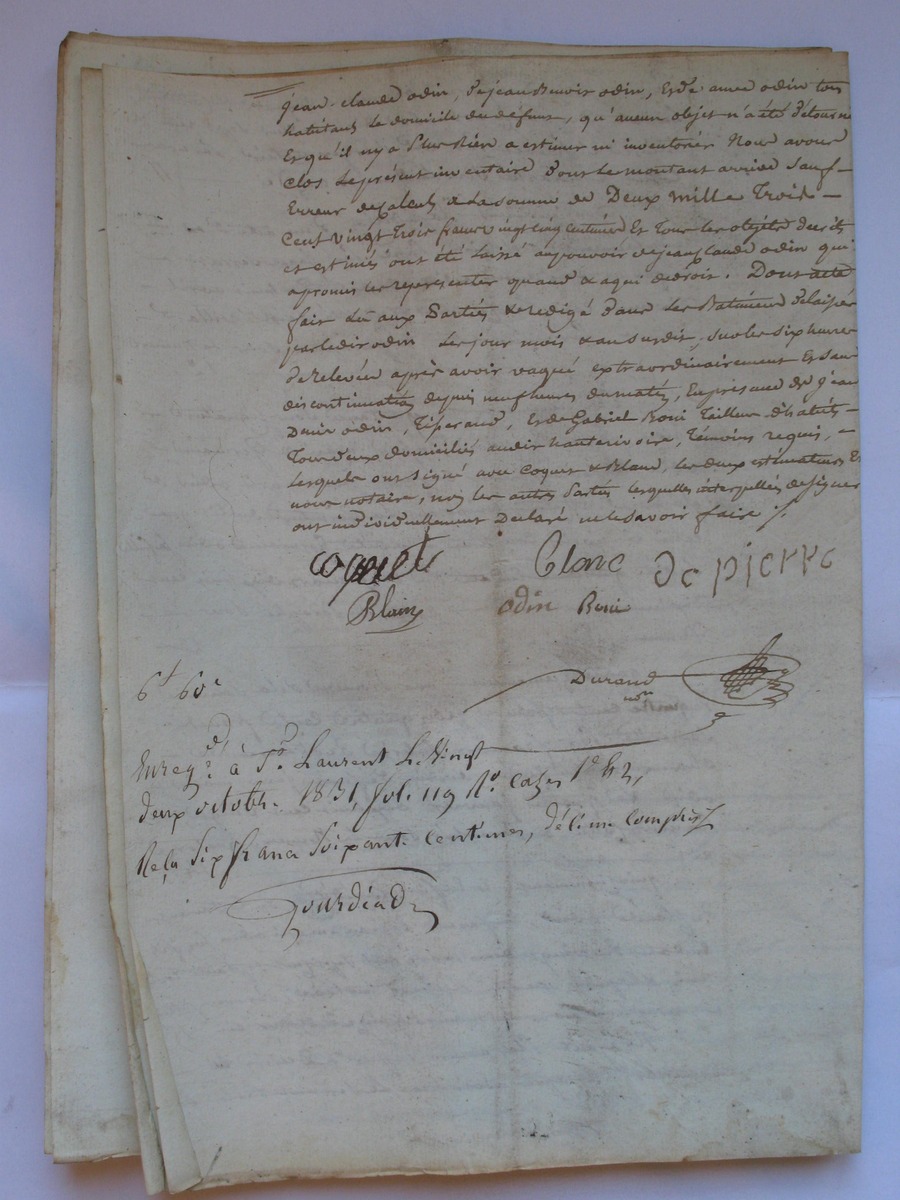 jean-claude odin, de jean Benoit odin, Et de aimé odin tous
habitant le domicile du défunt, qu'aucun objet n'a été détourné
Et qu'il n'y a plus Rien a estimer ni inventorier Nous avons
clos le présent inventaire Pour le montant arrive Sauf –
Erreur de Calcul a La somme de Deux mille Trois –
Cent vingt Trois francs vingt cinq centimes Et Tous les objets décrits
et estimés ont été laissé au pouvoir de jean claude odin qui
a promis les representer quand & a qui de droit. Dont acte
fait Lu aux Parties & redigé dans les Batimens délaissés
par ledit odin les jour mois & an susdit, sur les six heures
de Relevée après avoir vaqué extraordinairement Et sans
discontinuation depuis neuf heures du matin, En présence de jean
Denis odin, Tisserand, Et de Gabriel Roni Tailleur d'habits –
Tous deux domiciliés audit hauterivoire, Témoins requis, –
Lesquels ont signé avec Coquet & Blanc, les deux estimateurs Et
nous notaire, non les autres Parties lesquelles interpellées de signer
ont individuellement Déclaré ne le savoir faire ./.
coquet Blanc de pierre
Blain odin Roni
6f 60c
Durand
nore
Enregré à St Laurent le vingt
deux octobre 1831, fol. 119 Ro cases 1e & 2,
Reçu Six francs Soixante Centimes, décime compris
Jourdéad